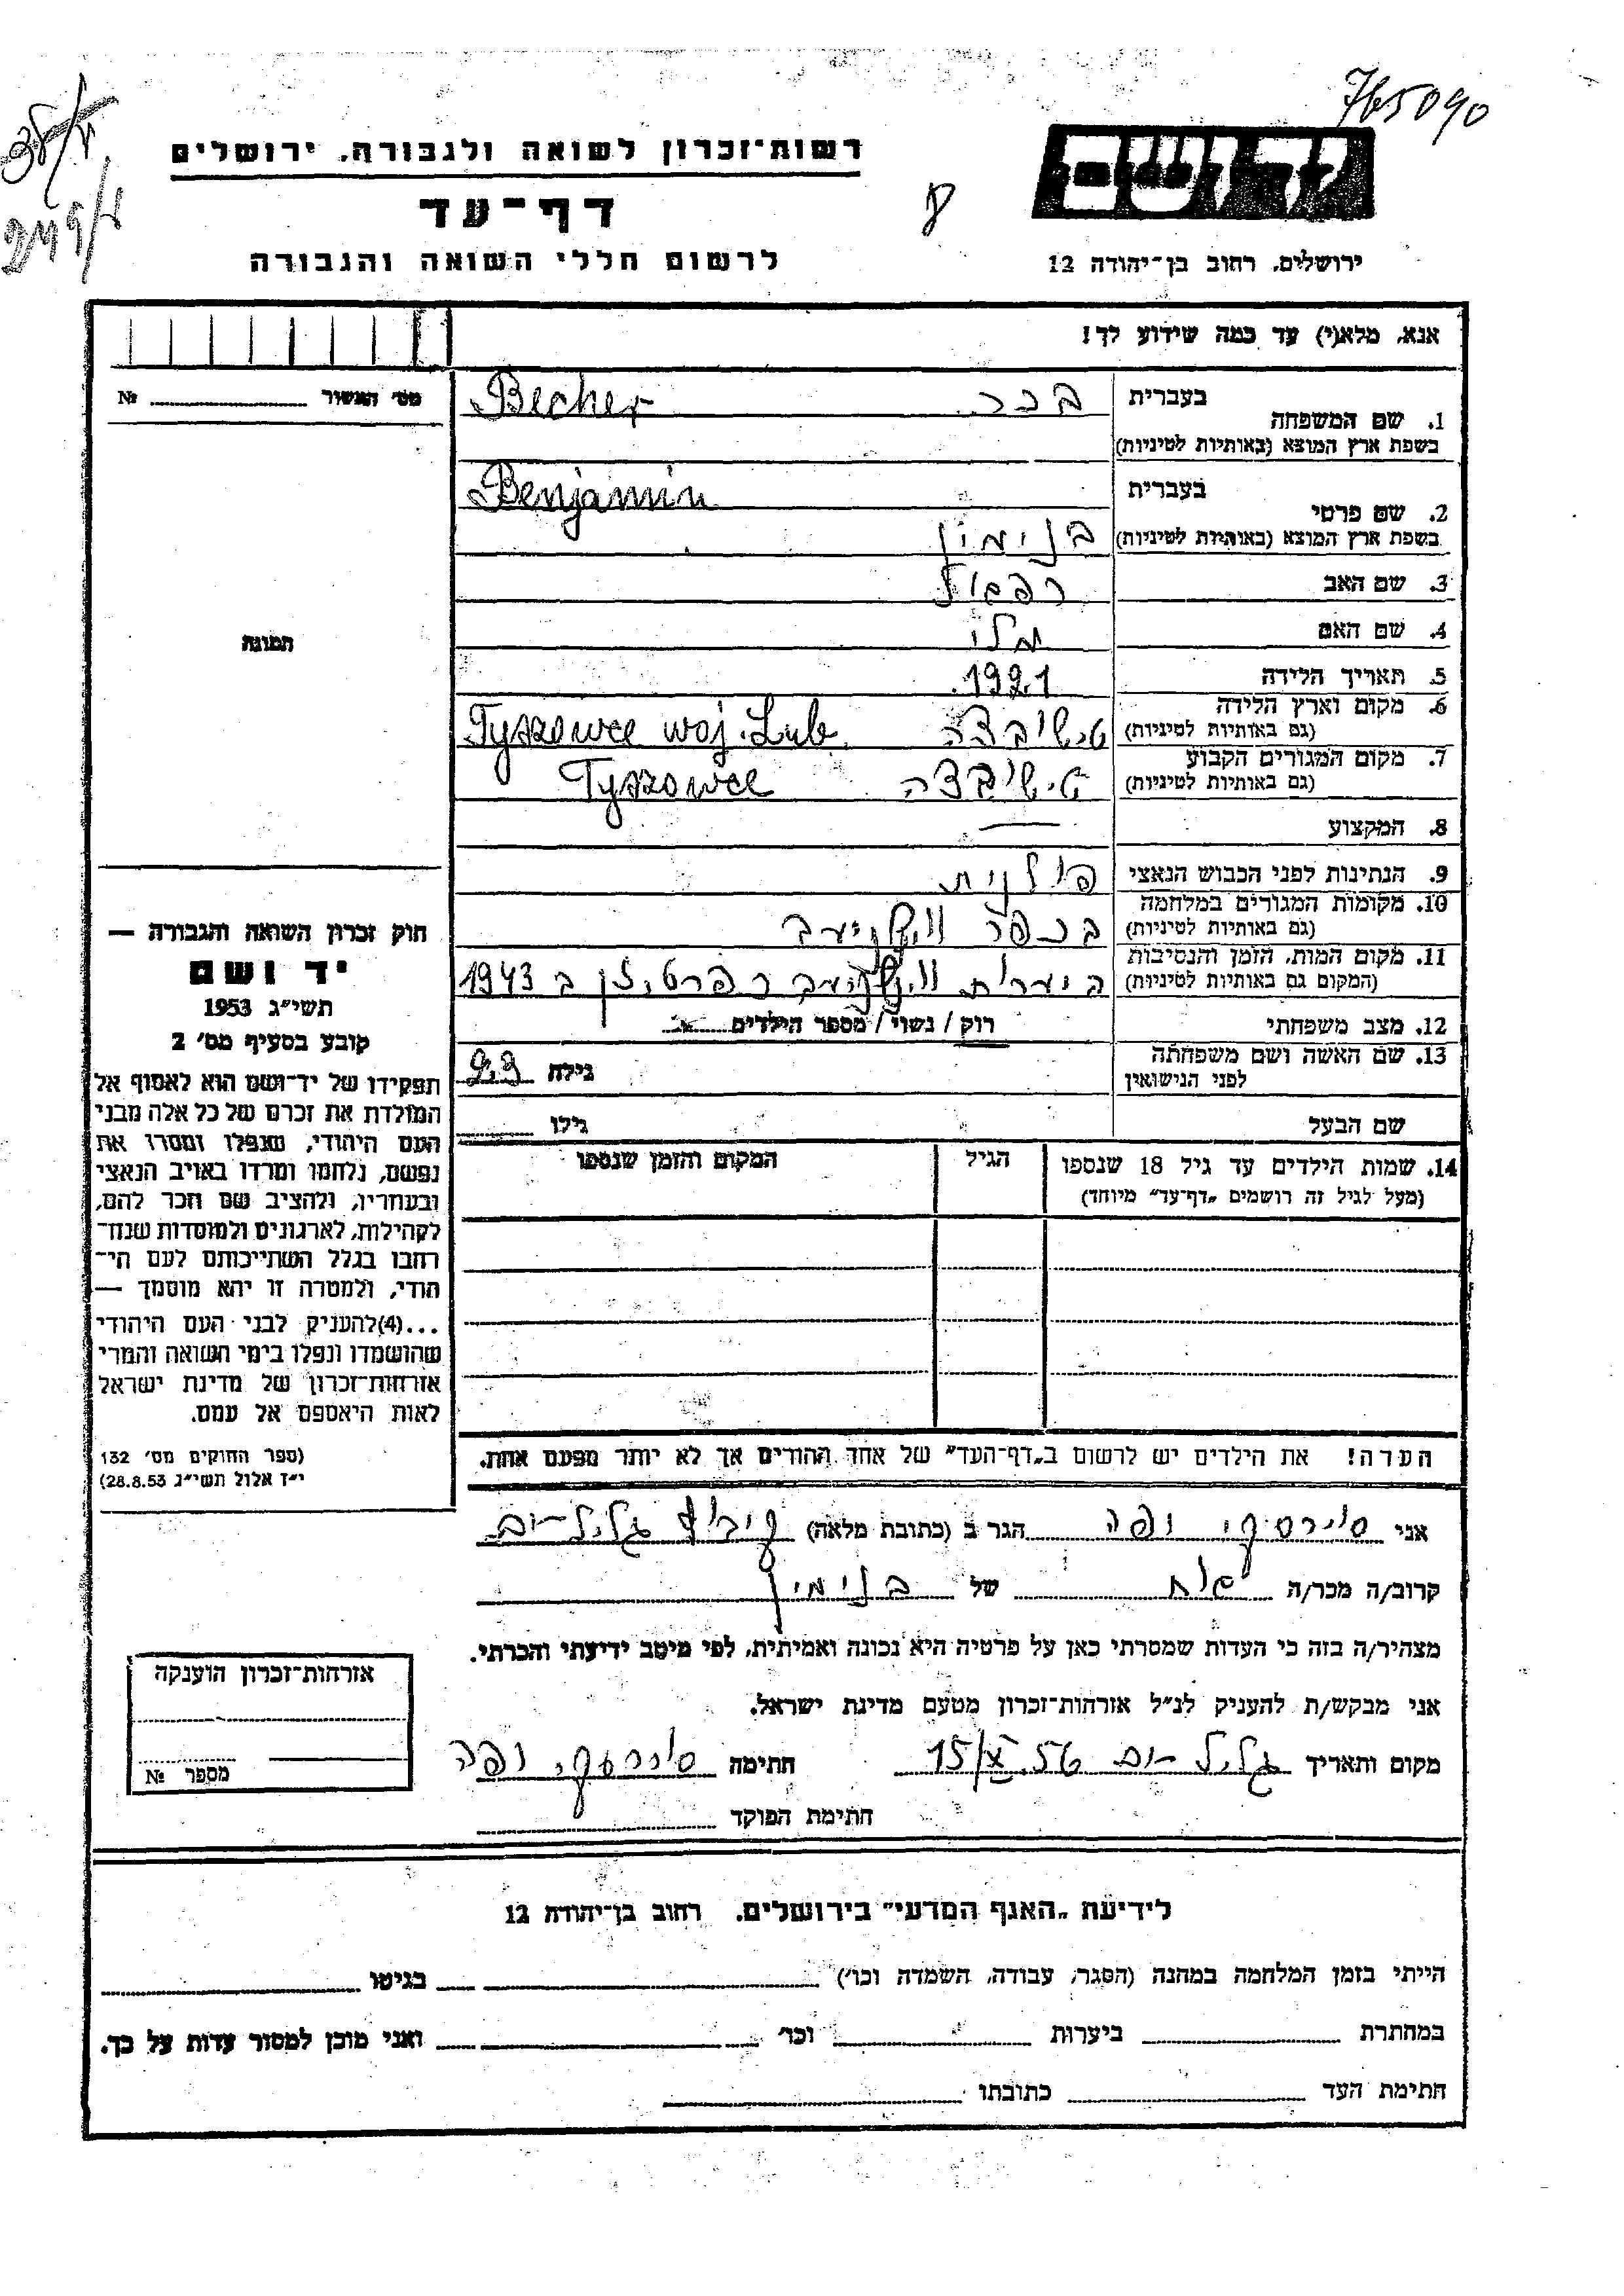 765090
רשות־זכרון לשואה ולגבורה. ירושלים
דף־עד
לרשום חללי השואה והגבורה
ירושלים. רחוב בן־יהודה 12
אנא, מלא(י) עד כמה שידוע לך!
מס' השאשור № 
בעברית
1. שם המשפחה בכר Becher
בשפת ארץ המוצא (באותיות לטיניות)
בעברית Benjamin
2. שם פרטי
בשפת ארץ המוצא (באותיות לטיניות) בנימין
3. שם האב רפאל
4. שם האם מלי
5. תאריך הלידה 1921
6. מקום וארץ הלידה
(גם באותיות לטיניות) טישיבצה Tyszowce woj. Lub
7. מקום המגורים הקבוע
(גם באותיות לטיניות) טישיבצה Tyszowce
8. המקצוע —
9. הנתינות לפני הכבוש הנאצי פולנית
10. מקומות המגורים במלחמה
(גם באותיות לטיניות) בכפר
11. מקום המות, הזמן והנסיבות
(המקום גם באותיות לטיניות) ביערות כפרטיזן ב 1943
12. מצב משפחתי רוק / נשוי / מספר הילדים
13. שם האשה ושם משפחתה
לפני הנישואין גילה 23
שם הבעל גילו
14. שמות הילדים עד גיל 18 שנספו הגיל המקום והזמן שנספו
(מעל לגיל זה רושמים „דף־עד” מיוחד)
הערה! את הילדים יש לרשום ב„דף־העד” של אחד ההורים אך לא יותר מפעם אחת.
תמונה
חוק זכרון השואה והגבורה —
יד ושם
תשי״ג 1953
קובע בסעיף מס' 2
תפקידו של יד־ושם הוא לאסוף אל
המולדת את זכרם של כל אלה מבני
העם היהודי, שנפלו ומסרו את
נפשם, נלחמו ומרדו באויב הנאצי
ובעוזריו, ולהציב שם וזכר להם,
לקהילות, לארגונים ולמוסדות שנח־
רבו בגלל השתייכותם לעם הי־
הודי, ולמטרה זו יהא מוסמך —
...(4)להעניק לבני העם היהודי
שהושמדו ונפלו בימי השואה והמרי
אזרחות־זכרון של מדינת ישראל
לאות היאספם אל עמם.
(ספר החוקים מס' 132
י״ד אלול תשי״ג 28.8.53)
אני סירסקי יפה הגר ב (כתובת מלאה) קיבוץ גליל־ים
קרוב/ה מכר/ה אח של בנימין
מצהיר/ה בזה כי העדות שמסרתי כאן על פרטיה היא נכונה ואמיתית, לפי מיטב ידיעתי והכרתי.
אני מבקש/ת להעניק לנ״ל אזרחות־זכרון מטעם מדינת ישראל.
מקום ותאריך גליל־ים 15/X.56 חתימה סירסקי יפה
חתימת הפוקד
אזרחות־זכרון הוענקה
מספר №
לידיעת „האגף המדעי” בירושלים. רחוב בן־יהודה 12
הייתי בזמן המלחמה במחנה (הסגר, עבודה, השמדה וכו') בגיטו
במחתרת ביערות וכו' ואני מוכן למסור עדות על כך.
חתימת העד כתובתו